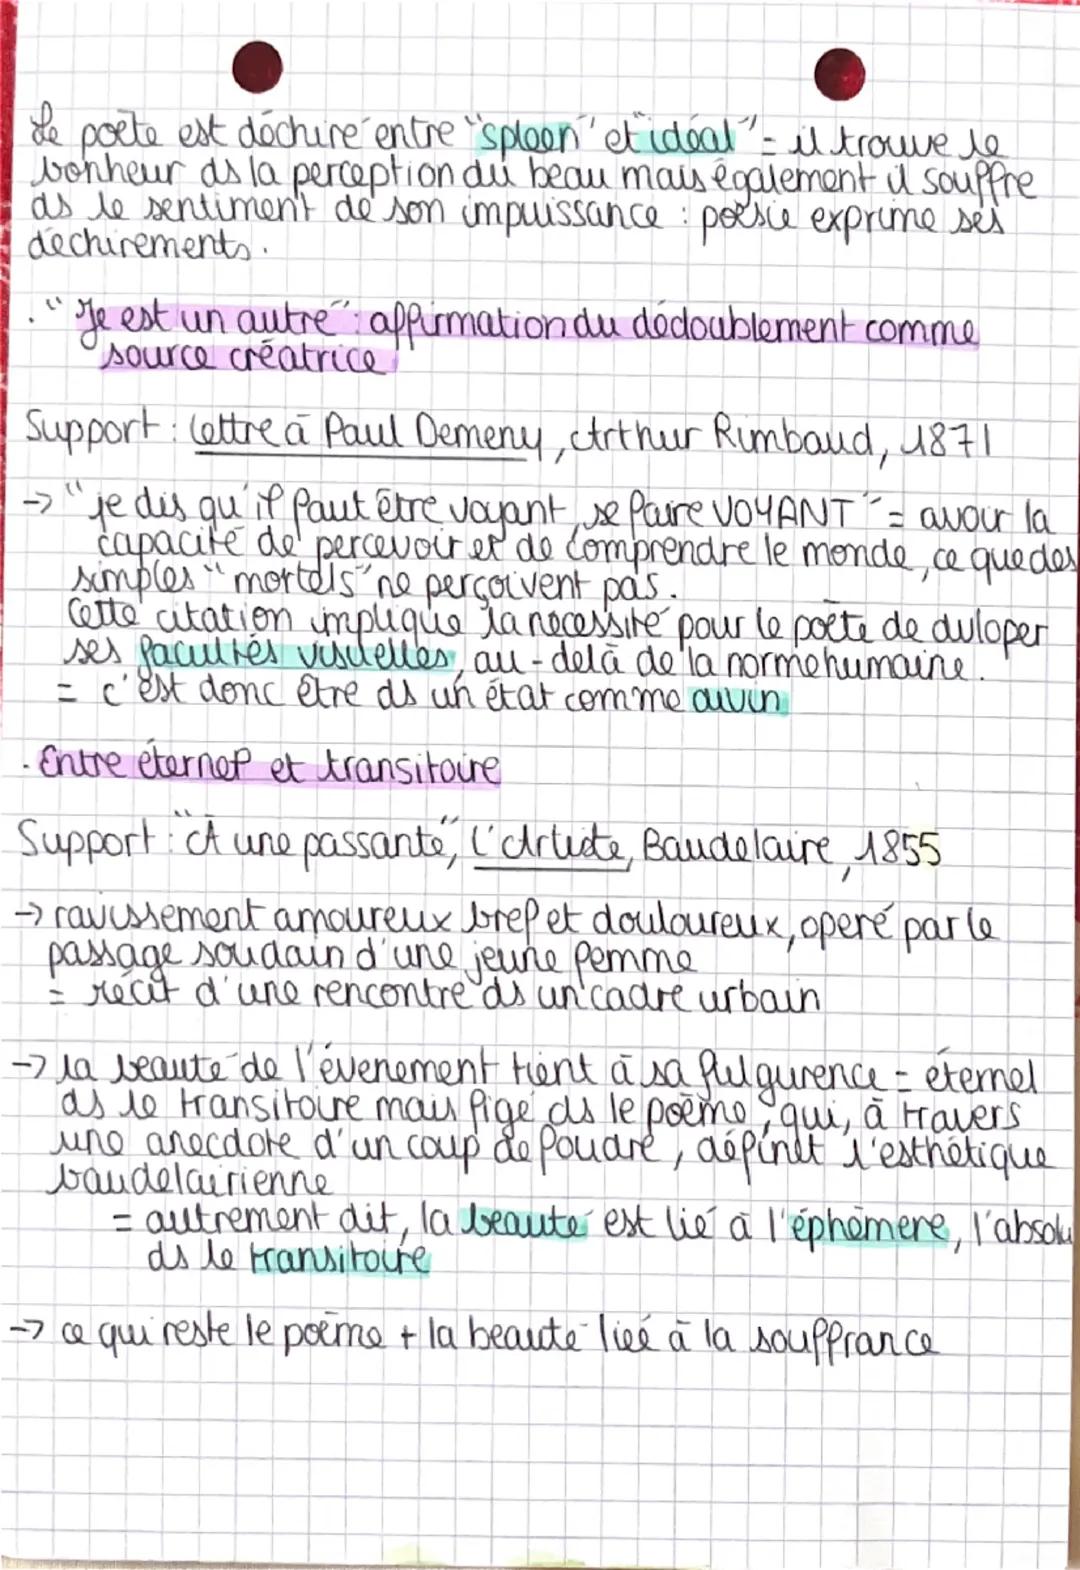 Le poète est déchiré entre "spleen" et "idéal" = il trouve le
bonheur ds la perception du beau mais également il souffre
ds le sentiment de son impuissance : poésie exprime ses
déchirements.
. "Je est un autre" : affirmation du dédoublement comme
source créatrice
Support : Lettre à Paul Demeny, Arthur Rimbaud, 1871
→ "je dis qu'il faut être voyant, se faire VOYANT" = avoir la
capacité de percevoir et de comprendre le monde, ce que des
simples "mortels" ne perçoivent pas.
Cette citation implique la nécessité pour le poète de duloper
ses facultés visuelles, au-delà de la norme humaine.
= c'est donc être ds un état comme divin
. Entre éternel et transitoire
Support : "A une passante", L'Artiste, Baudelaire, 1855
→ ravissement amoureux bref et douloureux, opéré par le
passage soudain d'une jeune femme
= récit d'une rencontre ds un cadre urbain
→ la beauté de l'évenement tient à sa fulgurence = éternel
ds le transitoire mais figé ds le poème, qui, à travers
une anecdote d'un coup de foudre, définit l'esthétique
baudelairienne
= autrement dit, la beauté est lié à l'éphémère, l'absolu
ds le transitoire
→ ce qui reste le poème + la beauté liée à la souffrance